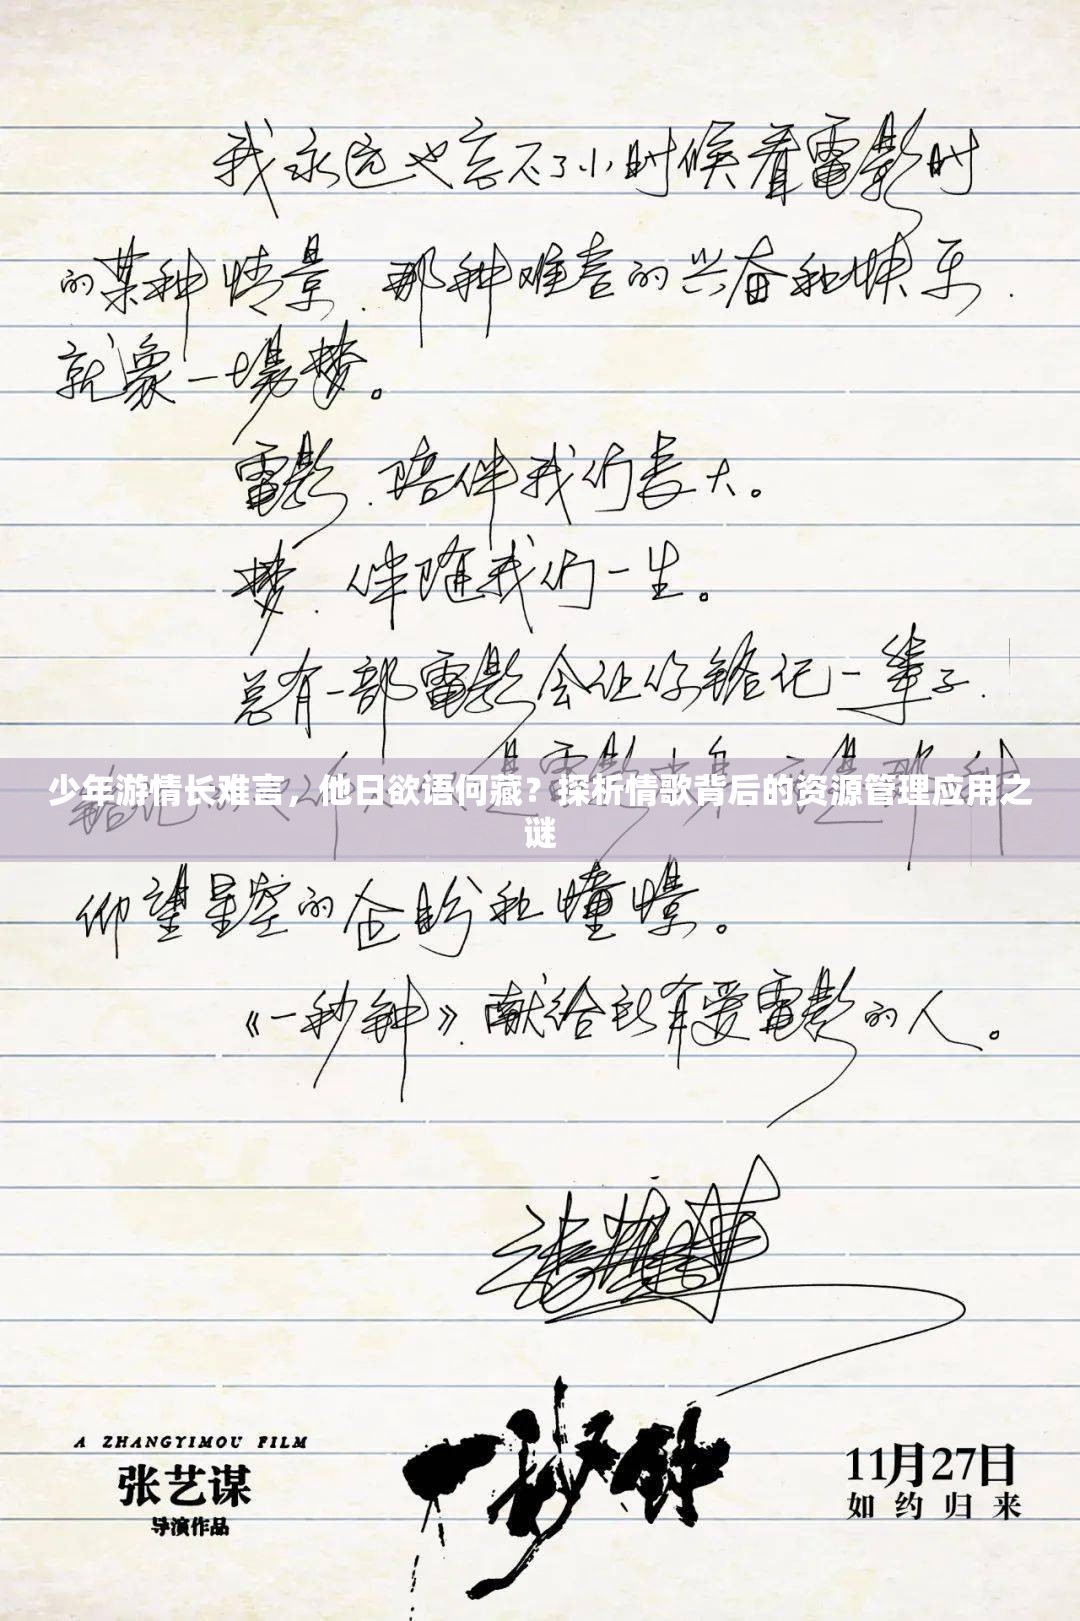 我永远也忘不了小时候看電影时
的某种情景,那种难言的兴奋和快乐,
就象一場梦。
電影,陪伴我们長大。
梦,伴随我们一生。
总有一部電影会让你铭记一辈子,
铭记的不仅仅是電影本身,而是那种
少年游情长难言，他日欲语何藏？探析情歌背后的资源管理应用之
谜
仰望星空的企盼和憧憬。
《一秒钟》,献给所有爱電影的人。
张艺谋
A ZHANGYIMOU FILM
张艺谋
导演作品
一秒钟
11月27日
如约归来